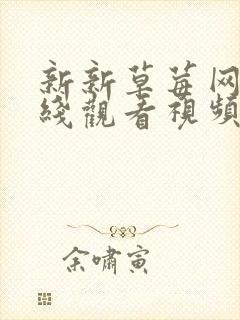 新新草莓网
綫觀看視頻
余啸寅